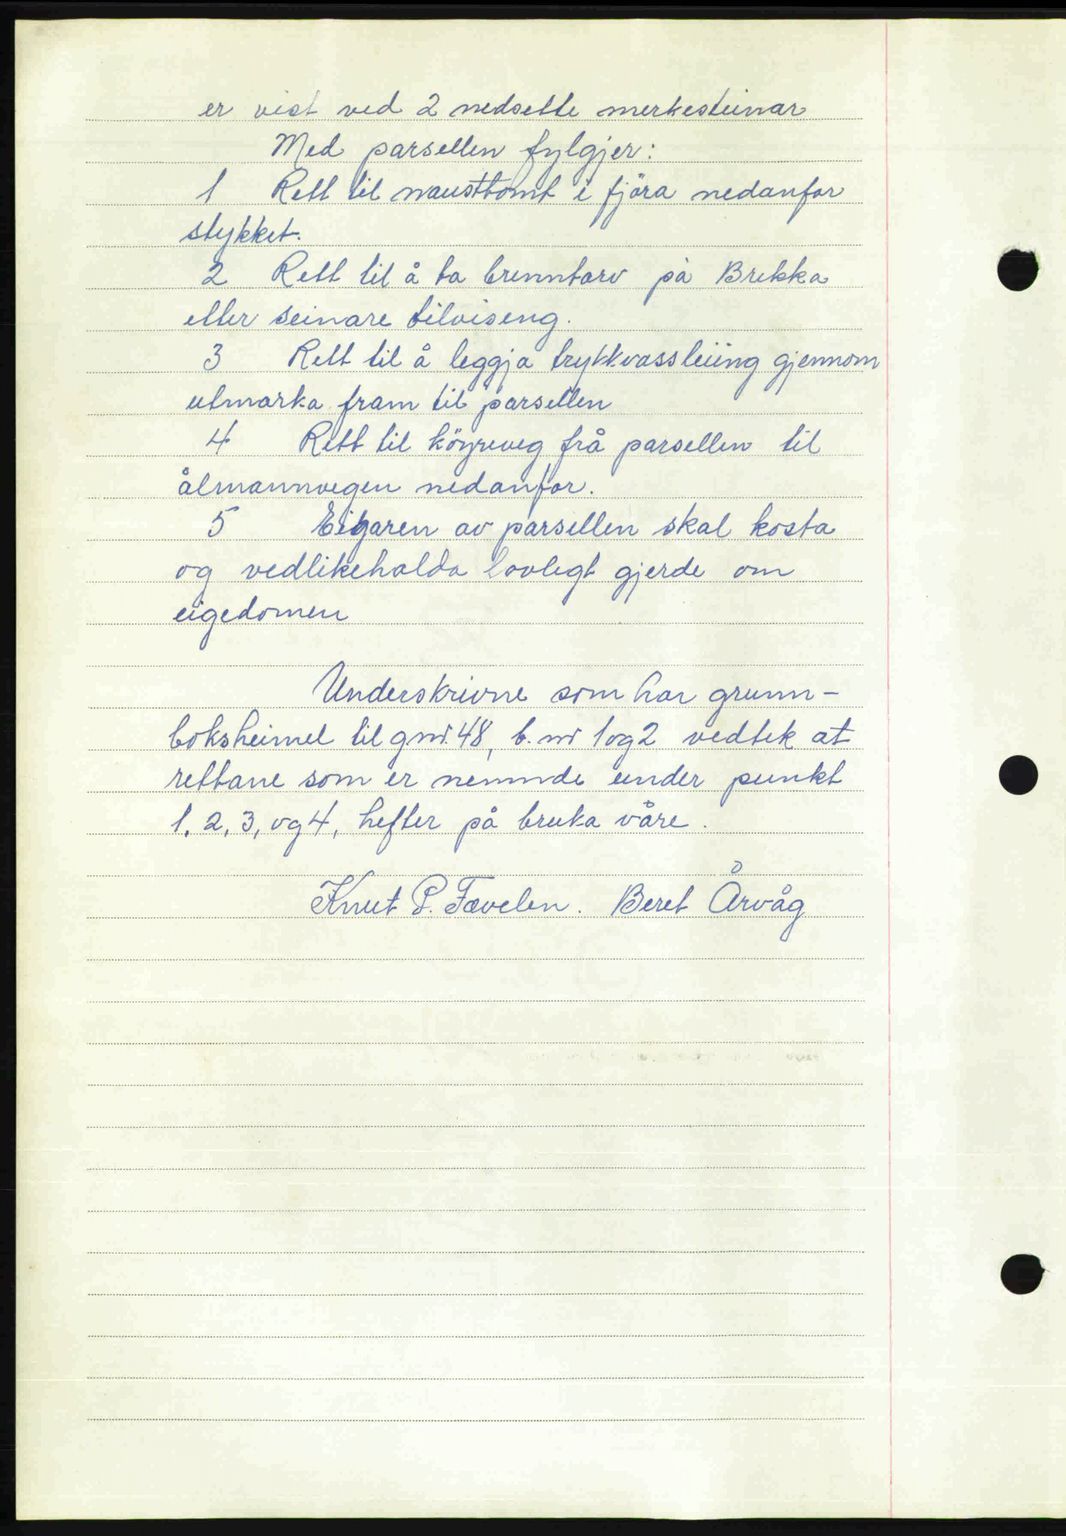 er vist ved 2 nedsette merkesteinar
Med parsellen fylgjer:
1 Rett til nausttomt i fjöra nedanfor
stykket.
2 Rett til å ta brenntorv på Brekka
eller seinare tilviseng.
3 Rett til å leggja trykkvassleiing gjennom
utmarka fram til parsellen
4 Rett til köyreveg frå parsellen til
ålmannvegen nedanfor.
5 Eigaren av parsellen skal kosta
og vedlikehalda lovlegt gjerde om
eigedomen
Underskrivne som har grunn-
boksheimel til gnr. 48, b. nr 1 og 2 vedtek at
rettane som er nemnde under punkt
1, 2, 3, og 4, hefter på bruka våre.
Knut P. Fævelen. Beret Årvåg